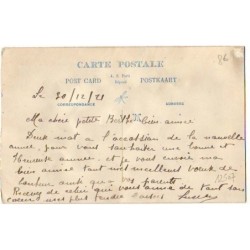 86
CARTE POSTALE
POST CARD POSTKAART
Le 30/12/21
CORRESPONDANCE ADRESSE
Ma chère petite Berthe bien aimée
Deux mot a l'occassion de la nouvelle
année, pour vous souhaiter une bonne et
Heureuse année, et je vous envoie ma
bien aimée tant mes meilleurs vœux de
bonheur ainsi que a vos parents
Recevez de celui qui vous aime de tout son
coeur mes plus tendre baisers